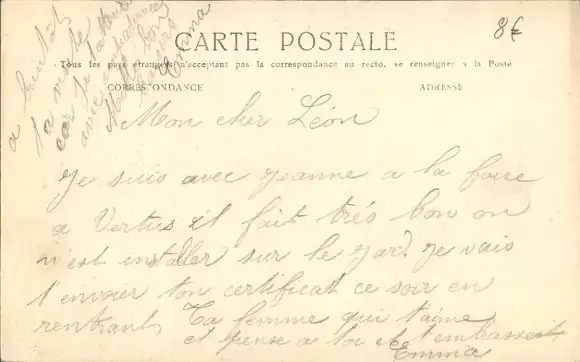 a bientôt
ta visite
car je t'attend
avec impatience
Mille bon
baisers
Emma
8€
CARTE POSTALE
Tous les pays étrangers n'acceptent pas la correspondance au recto, se renseigner à la Poste
CORRESPONDANCE
ADRESSE
Mon cher Léon
Je suis avec Jeanne a la foire
a Vertus il fait trés bon on
n'est installer sur le Jard. Je vais
t'envoier ton certificat ce soir en
rentrant Ta femme qui t'aime
et pense a toi et t'embrasse
Emma